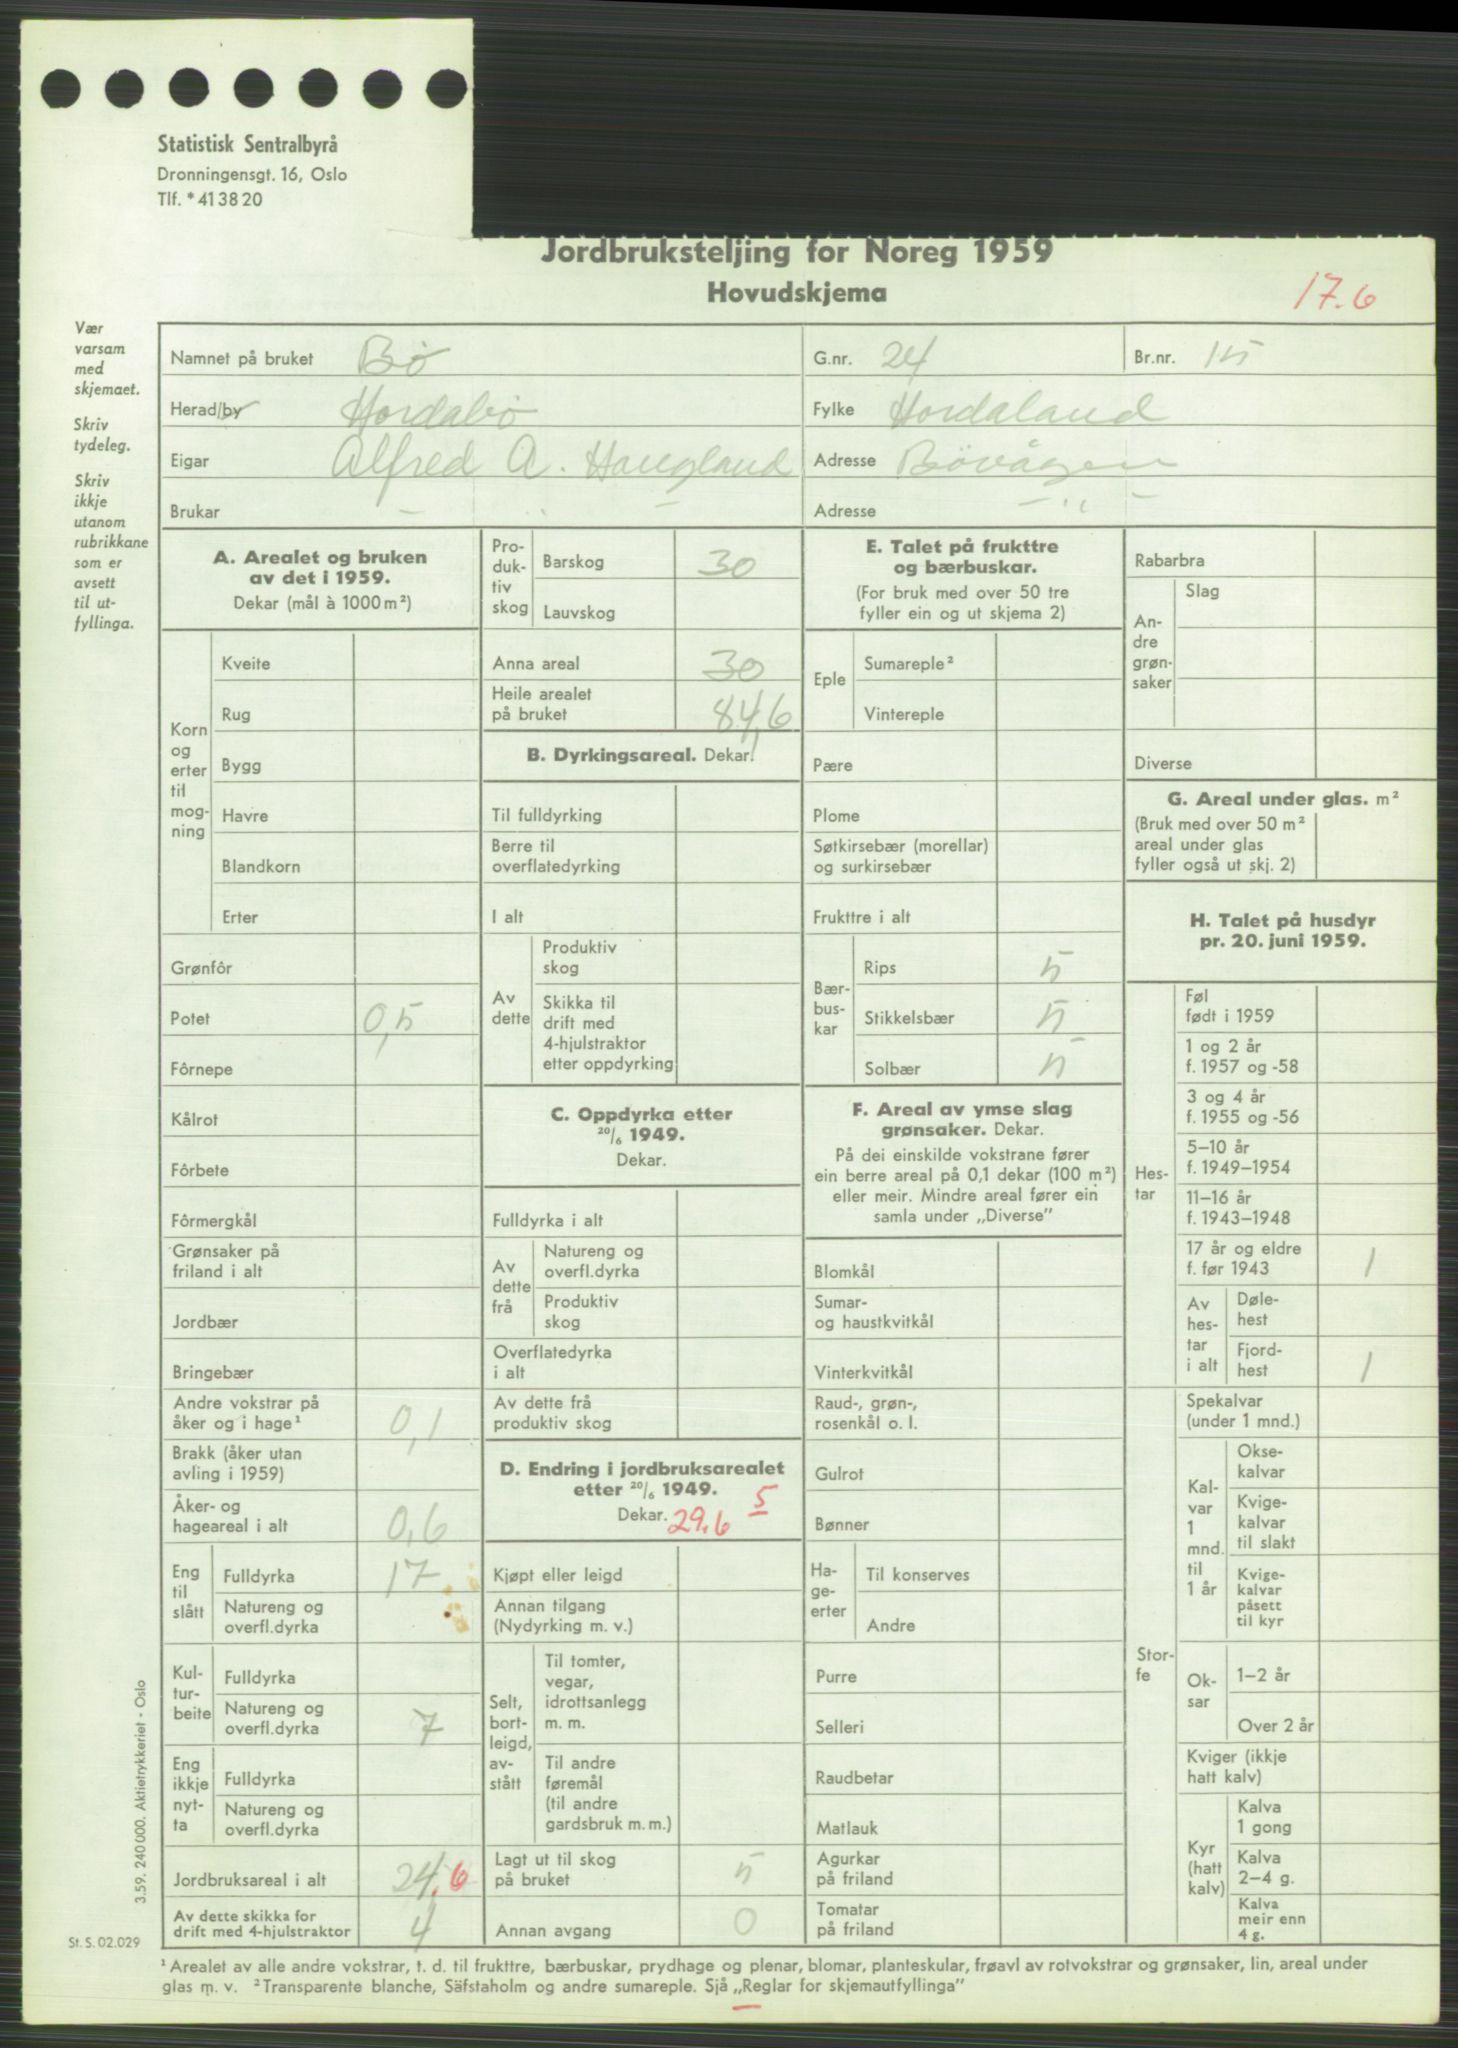 Statistisk Sentralbyrå
Dronningensgt. 16, Oslo
Tlf. * 41 38 20
Jordbruksteljing for Noreg 1959
Hovudskjema
17.6
Vær
varsam
med
skjemaet.
Skriv
tydeleg.
Skriv
ikkje
utanom
rubrikkane
som er
avsett
til ut-
fyllinga.
Namnet på bruket Bö G.nr. 24 Br.nr. 15
Herad/by Hordabö Fylke Hordaland
Eigar Alfred A. Haugland Adresse Bövågen
Brukar — „ — Adresse — „ —
A. Arealet og bruken
av det i 1959.
Dekar (mål à 1000 m²)
Korn
og
erter
til
mog-
ning
Kveite
Rug
Bygg
Havre
Blandkorn
Erter
Grønfôr
Potet 0,5
Fôrnepe
Kålrot
Fôrbete
Fôrmergkål
Grønsaker på
friland i alt
Jordbær
Bringebær
Andre vokstrar på
åker og i hage¹ 0,1
Brakk (åker utan
avling i 1959)
Åker- og
hageareal i alt 0,6
Eng
til
slått
Fulldyrka 17
Natureng og
overfl.dyrka
Kul-
tur-
beite
Fulldyrka
Natureng og
overfl.dyrka 7
Eng
ikkje
nyt-
ta
Fulldyrka
Natureng og
overfl.dyrka
Jordbruksareal i alt 24.6
Av dette skikka for
drift med 4-hjulstraktor 4
Pro-
duk-
tiv
skog
Barskog 30
Lauvskog
Anna areal 30
Heile arealet
på bruket 84,6
B. Dyrkingsareal. Dekar.
Til fulldyrking
Berre til
overflatedyrking
I alt
Av
dette
Produktiv
skog
Skikka til
drift med
4-hjulstraktor
etter oppdyrking
C. Oppdyrka etter
20/6 1949.
Dekar.
Fulldyrka i alt
Av
dette
frå
Natureng og
overfl.dyrka
Produktiv
skog
Overflatedyrka
i alt
Av dette frå
produktiv skog
D. Endring i jordbruksarealet
etter 20/6 1949. 5
Dekar. 29.6
Kjøpt eller leigd
Annan tilgang
(Nydyrking m. v.)
Selt,
bort-
leigd,
av-
stått
Til tomter,
vegar,
idrottsanlegg
m. m.
Til andre
føremål
(til andre
gardsbruk m. m.)
Lagt ut til skog
på bruket 5
Annan avgang 0
E. Talet på frukttre
og bærbuskar.
(For bruk med over 50 tre
fyller ein og ut skjema 2)
Eple
Sumareple ²
Vintereple
Pære
Plome
Søtkirsebær (morellar)
og surkirsebær
Frukttre i alt
Bær-
bus-
kar
Rips 5
Stikkelsbær 5
Solbær 5
F. Areal av ymse slag
grønsaker. Dekar.
På dei einskilde vokstrane fører
ein berre areal på 0,1 dekar (100 m²)
eller meir. Mindre areal fører ein
samla under „Diverse”
Blomkål
Sumar-
og haustkvitkål
Vinterkvitkål
Raud-, grøn-,
rosenkål o. l.
Gulrot
Bønner
Ha-
ge-
erter
Til konserves
Andre
Purre
Selleri
Raudbetar
Matlauk
Agurkar
på friland
Tomatar
på friland
Rabarbra
An-
dre
grøn-
saker
Slag
Diverse
G. Areal under glas. m²
(Bruk med over 50 m²
areal under glas
fyller også ut skj. 2)
H. Talet på husdyr
pr. 20. juni 1959.
Hes-
tar
Føl
født i 1959
1 og 2 år
f. 1957 og -58
3 og 4 år
f. 1955 og -56
5–10 år
f. 1949–1954
11–16 år
f. 1943–1948
17 år og eldre
f. før 1943 1
Av
hes-
tar
i alt
Døle-
hest
Fjord-
hest 1
Stor-
fe
Spekalvar
(under 1 mnd.)
Kal-
var
1
mnd.
til
1 år
Okse-
kalvar
Kvige-
kalvar
til slakt
Kvige-
kalvar
påsett
til kyr
Ok-
sar
1–2 år
Over 2 år
Kviger (ikkje
hatt kalv)
Kyr
(hatt
kalv)
Kalva
1 gong
Kalva
2–4 g.
Kalva
meir enn
4 g.
3.59. 240 000. Aktietrykkeriet - Oslo
St. S. 02.029
¹ Arealet av alle andre vokstrar, t. d. til frukttre, bærbuskar, prydhage og plenar, blomar, planteskular, frøavl av rotvokstrar og grønsaker, lin, areal under
glas m. v. ² Transparente blanche, Säfstaholm og andre sumareple. Sjå „Reglar for skjemautfyllinga”